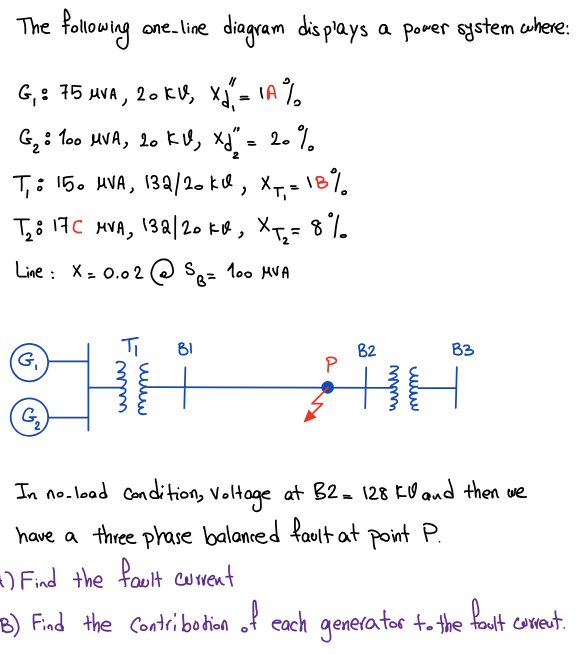 The following one-line diagram displays a power system where:
G₁: 75 MVA, 20 KV, Xd₁" = 1A%
G₂: 100 MVA, 20 KV, Xd₂" = 20%
T₁: 150 MVA, 132/20 KV, X_T₁ = 1B%
T₂: 17C MVA, 132/20 KV, X_T₂ = 8%
Line: X = 0.02 @ S_B = 100 MVA
T1 B1 P B2 B3
G₁
G₂
In no-load condition, Voltage at B2 = 128 KV and then we
have a three phase balanced fault at point P.
) Find the fault current
B) Find the contribution of each generator to the fault current.